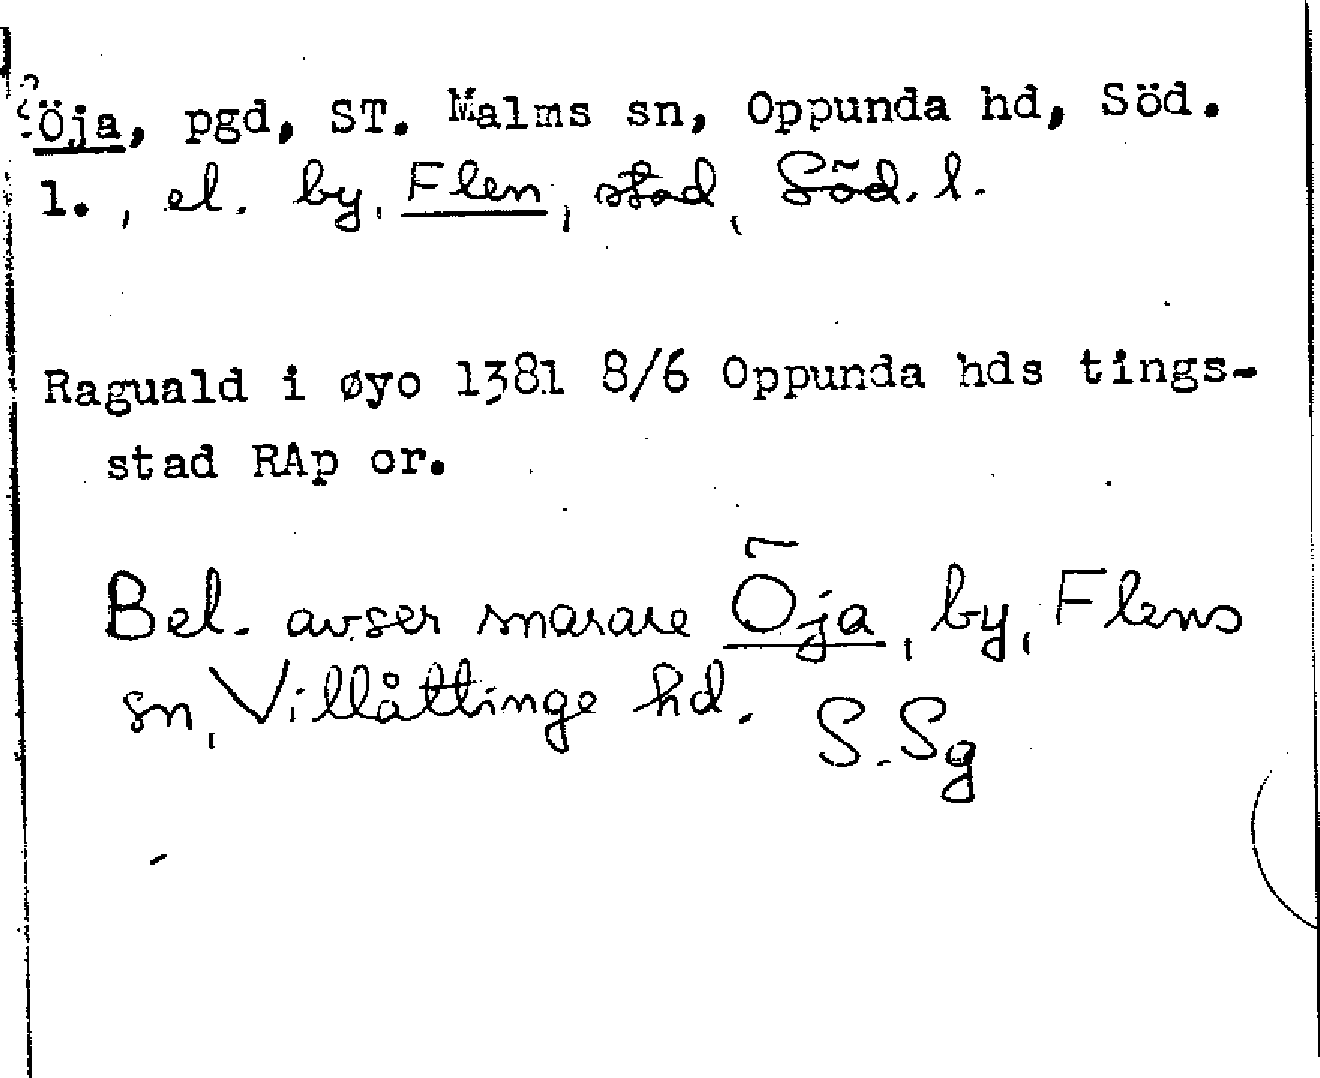 ?Öja, pgd, ST. Malms sn, Oppunda hd, Söd.
l., el. by, Flen, stad, Söd. l.
Raguald i øyo 1381 8/6 Oppunda hds tings-
stad RAp or.
Bel. avser snarare Öja, by, Flens
sn, Villåttinge hd. S.Sg